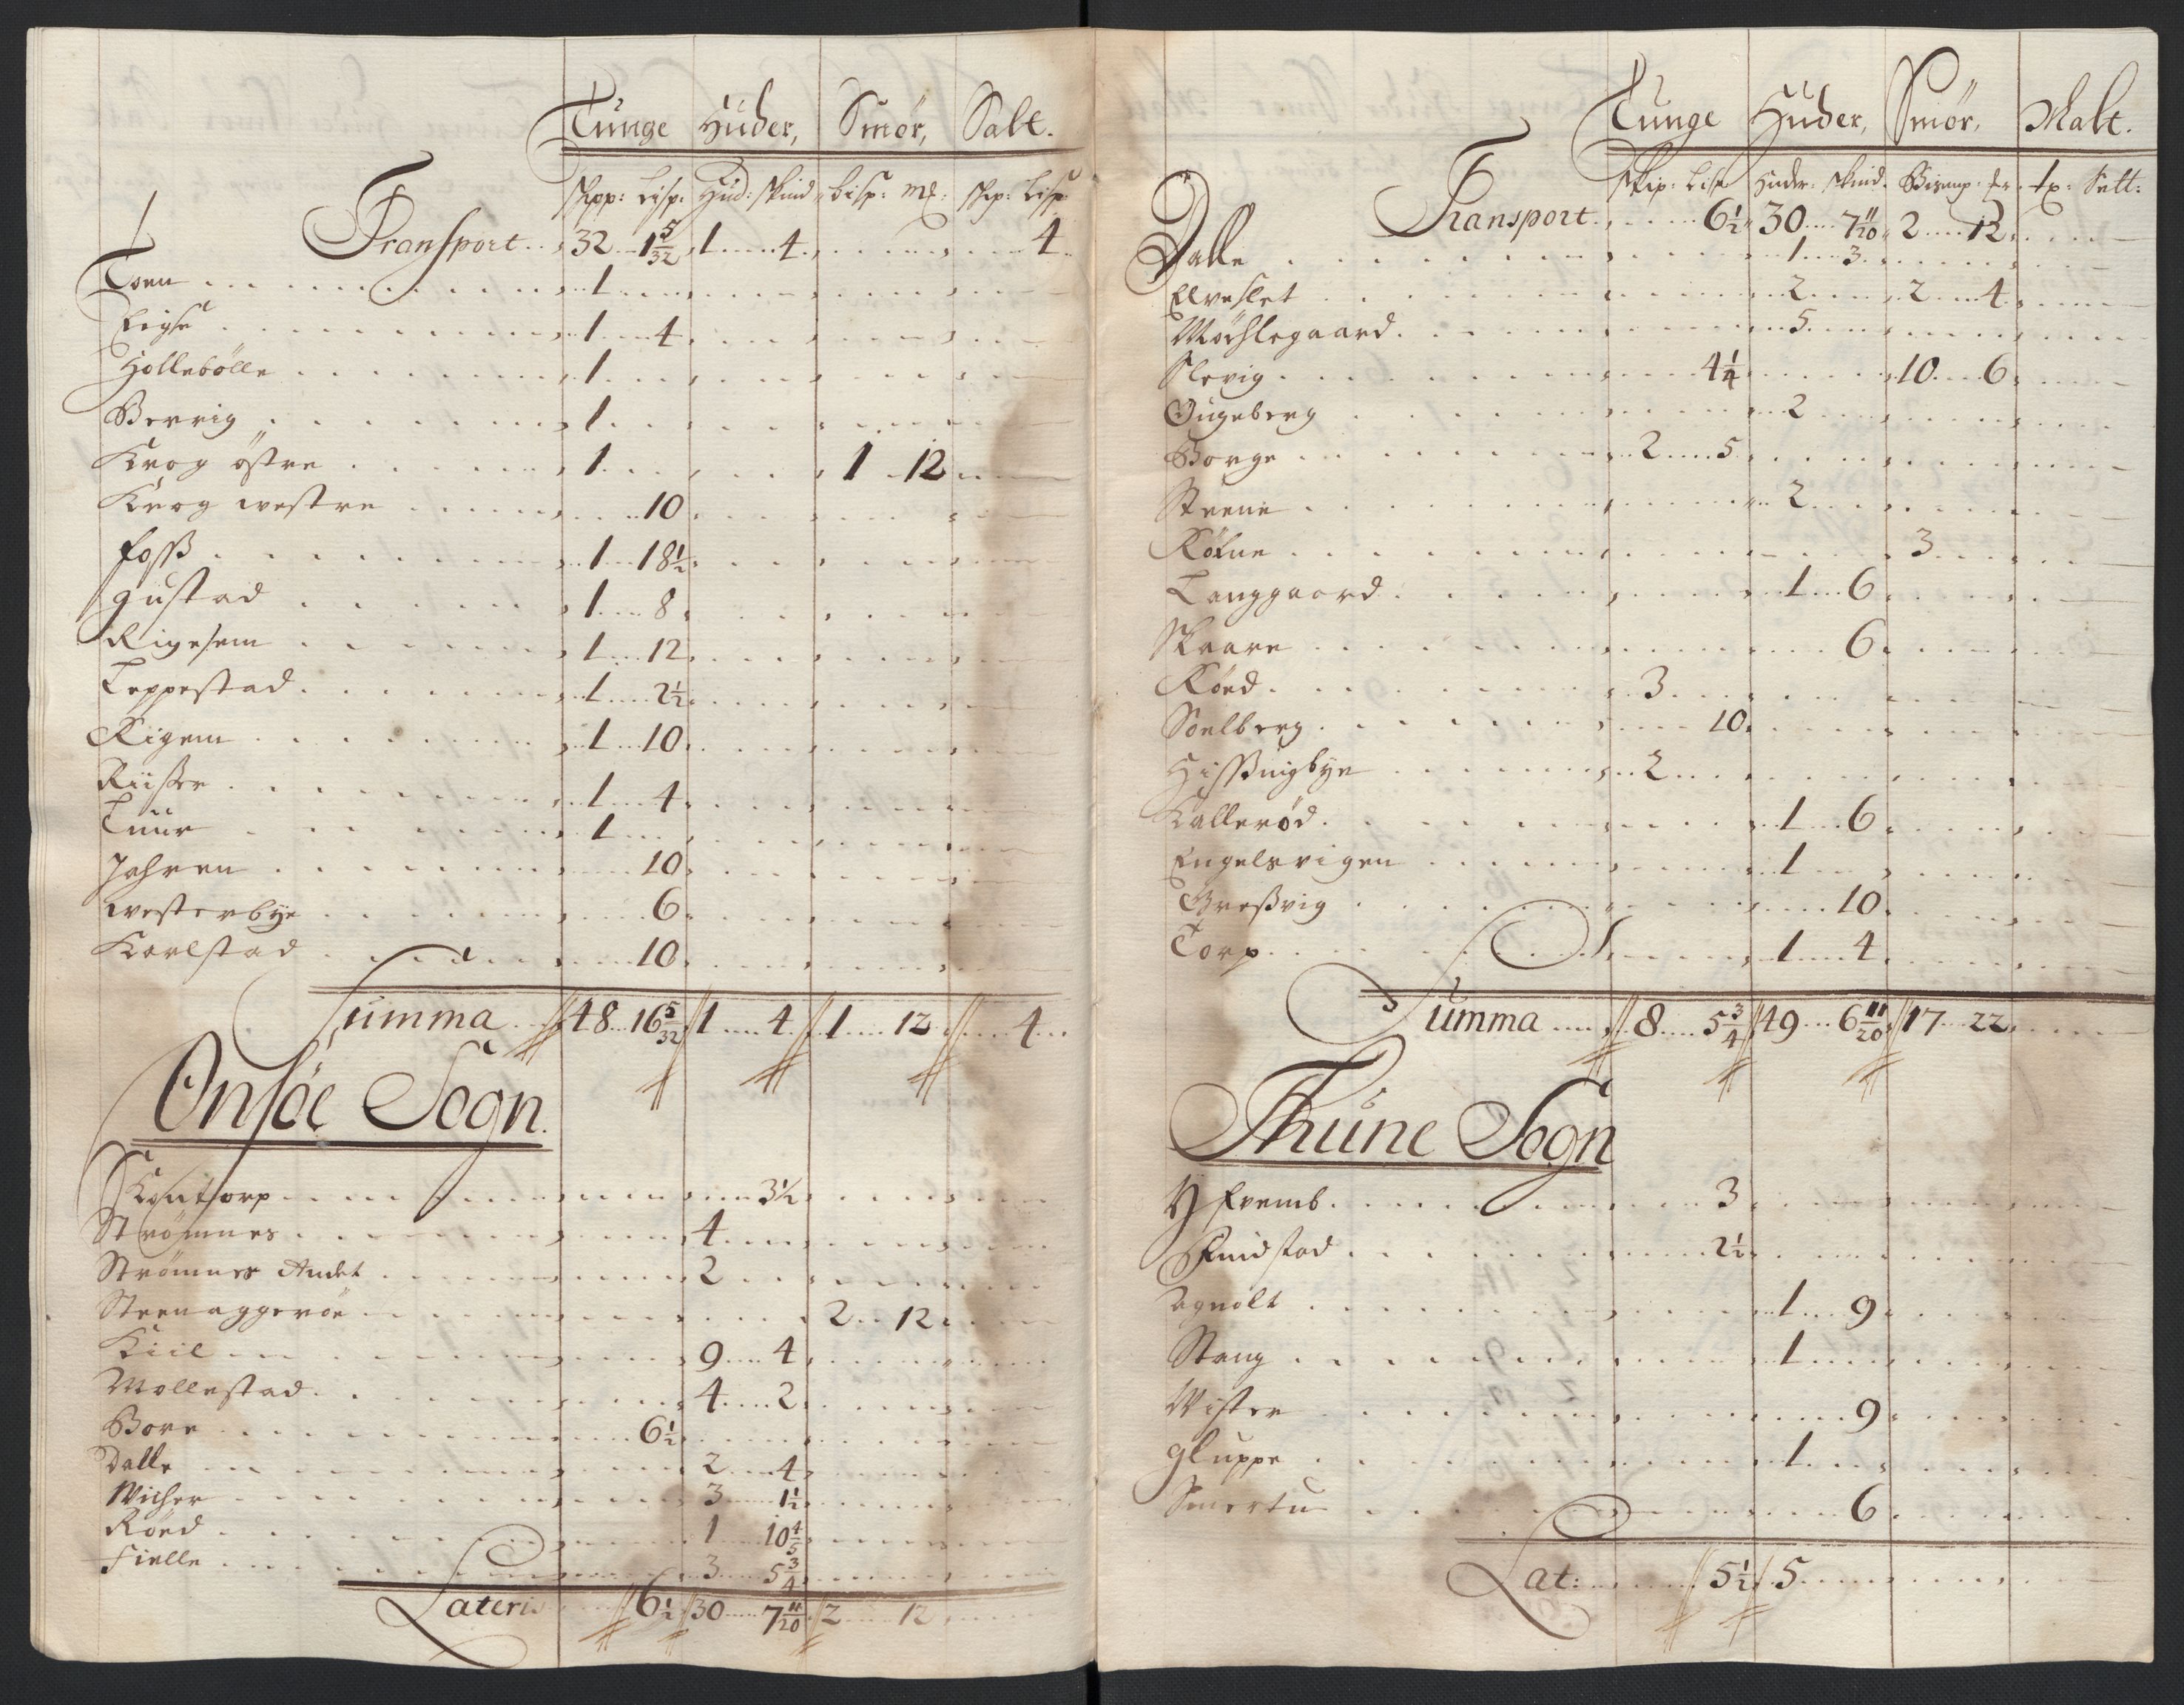 Tunge Huder, Smör, Salt.
skpp: Lisp: Hud: skind bisp: mk: skp: Lisp
Transport 32 1 5/32 1 4 4
Toen 1
Eigse 1 4
Hollebölle 1
Berrig 1
Krog östre 1 1 12
Krog westre 10
foss 1 18½
Gustad 1 8
Rigesem 1 12
Leppestad 1 2½
Rigem 1 10
Riiser 1 4
Tuur 1
Jahren 10
westerbye 6
Karlstad 10
Summa 48 16 5/32 1 4 1 12 4
Onsöe Sogn.
Kautsorp 3½
Strömnes 4
Strömnes Andet 2
Steenaggeröe 2 12
Kiil 9 4
Mollestad 4 2
Bore 6½
Dalle 2 4
Wicher 3 1½
Röed 1 10 4/5
Fielle 3 5 3/4
Lateris 6½ 30 7 11/20 2 12
Tunge Huder, Smör, Malt.
skip: Lisp Huder: skind. Bismp. tx: Sett:
Transport 6½ 30 7 11/20 2 12
Dalle 1 3
Elveslet 2 2 4
Möchlegaard 5
Slevig 4¼ 10 6
Ougeberg 2
Borge 2 5
Steene 2
Köfne 3
Langgaard 1 6
Skaare 6
Röed 3
Soelberg 10
Hissingbye 2
Kallerød 1 6
Engelsvigen 1
Gressvig 10
Torp 1 4
Summa 8 5 3/4 49 6 11/20 17 22
Thune Sogn
Y fremb 3
Kundstad 2½
Agnalt 1 9
Stang 1
Wister 9
Gluppe 1
Smertu 6
Lat: 5½ 5